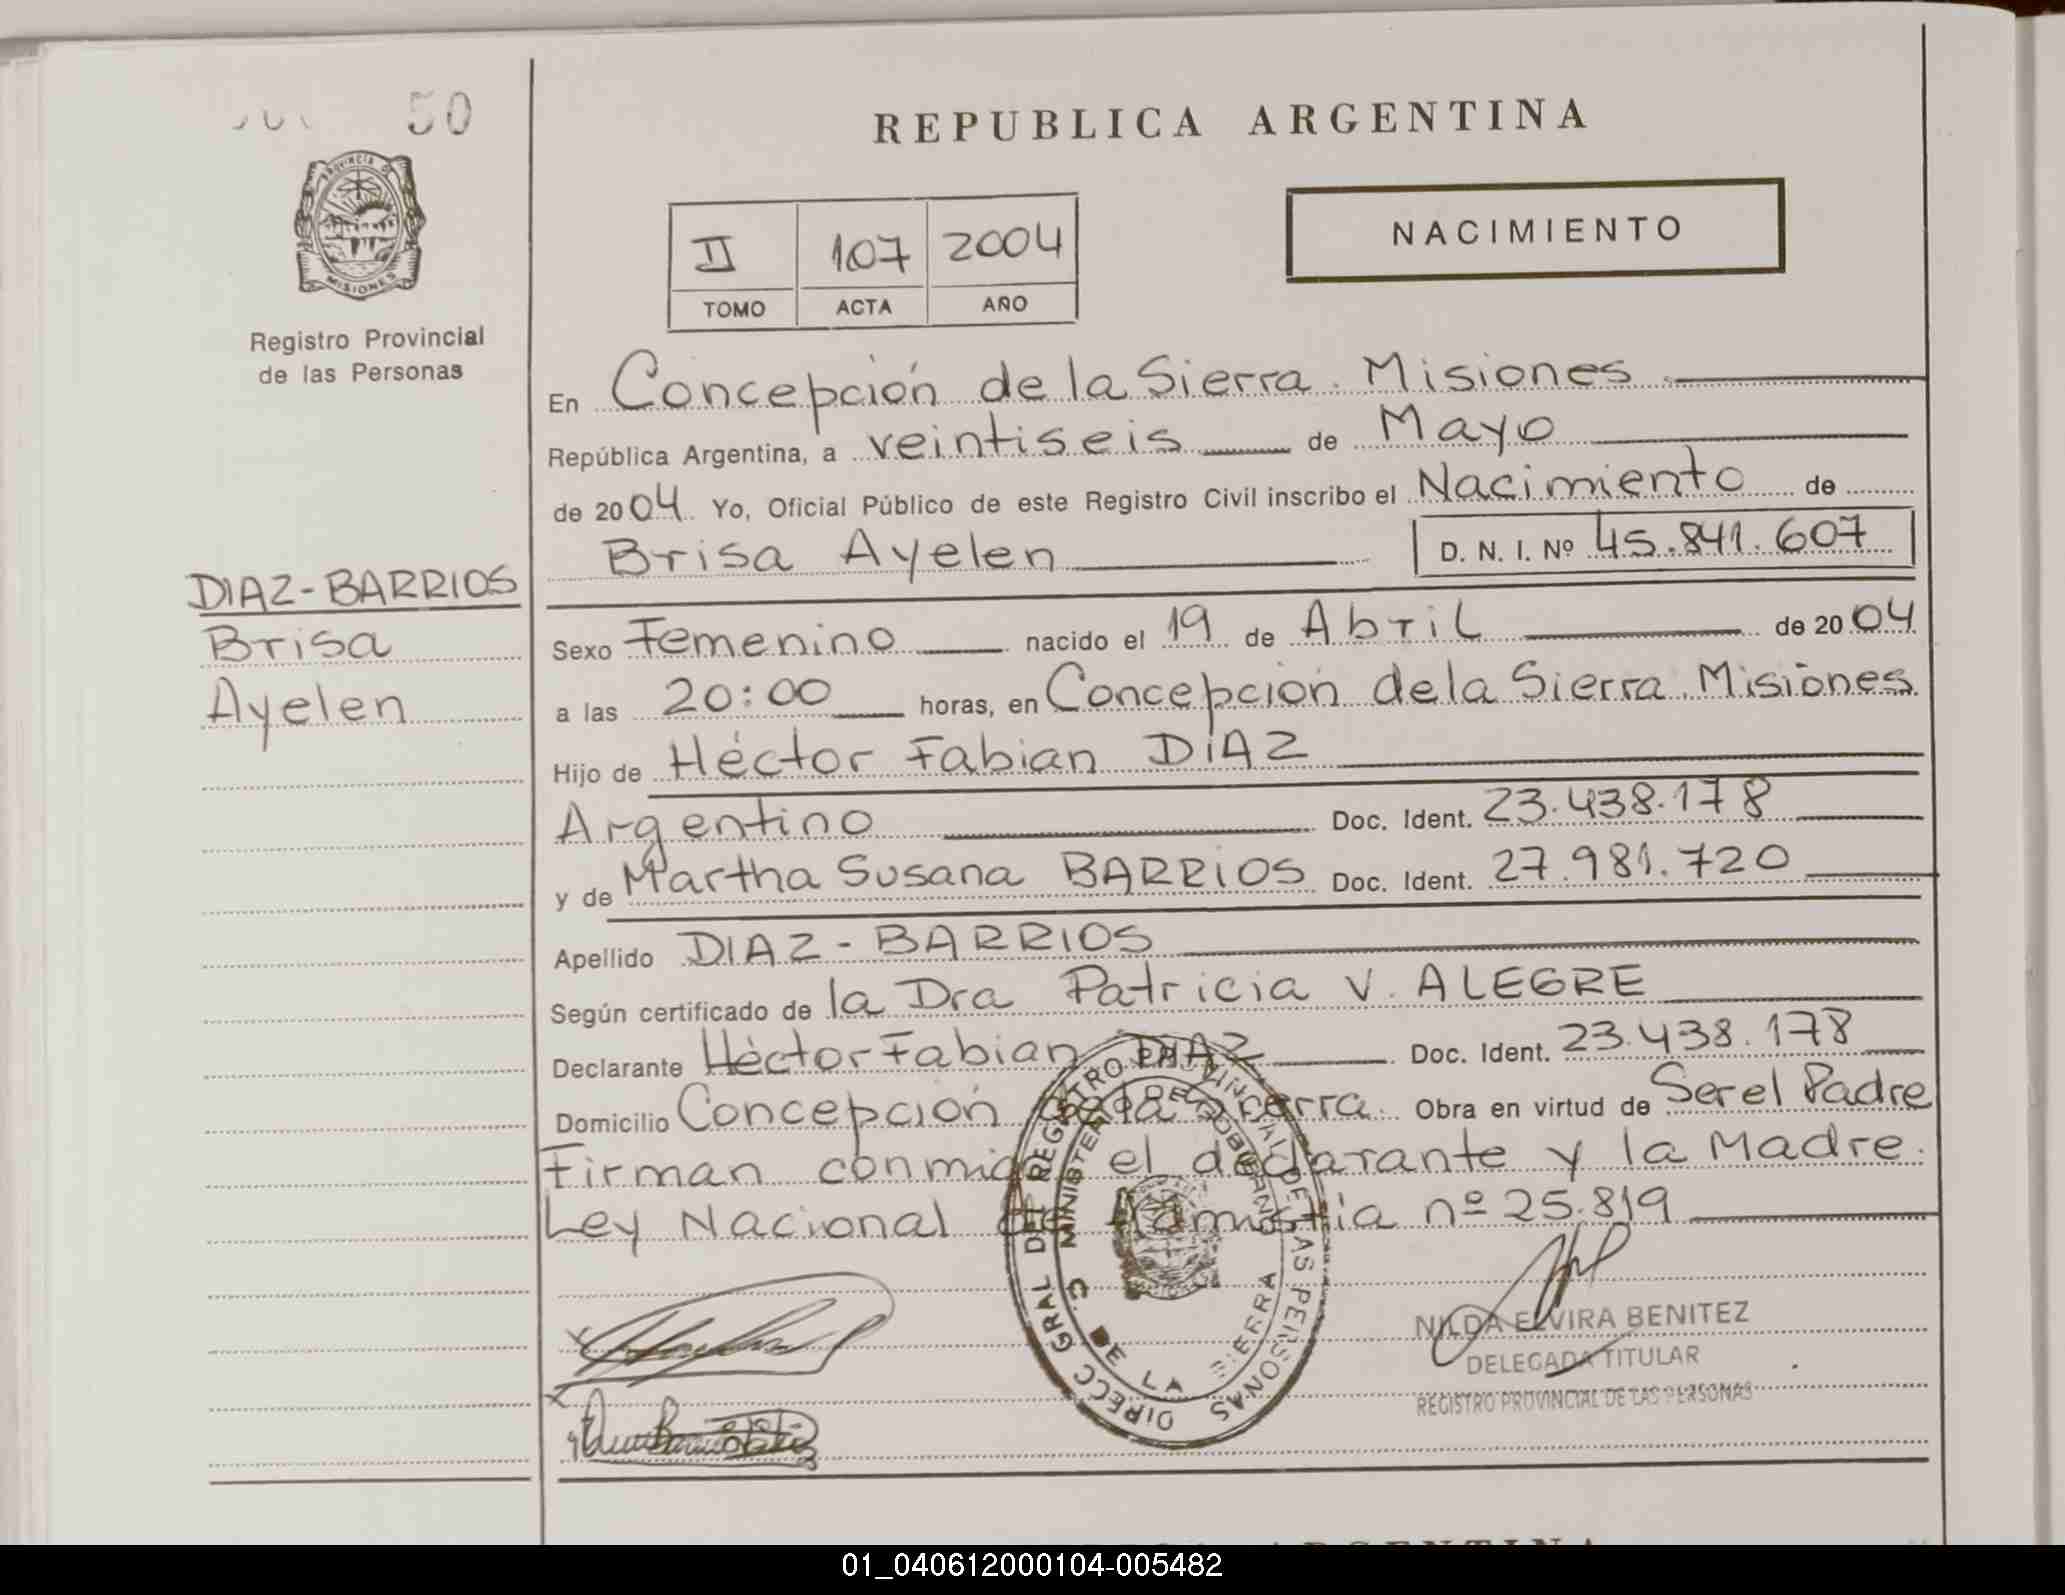 50
PROVINCIA DE
MISIONES
Registro Provincial
de las Personas
DIAZ-BARRIOS
Brisa
Ayelen
REPUBLICA ARGENTINA
II 107 2004
TOMO ACTA AÑO
NACIMIENTO
En Concepción de la Sierra. Misiones
República Argentina, a veintiseis de Mayo
de 2004 Yo, Oficial Público de este Registro Civil inscribo el Nacimiento de
Brisa Ayelen D. N. I. Nº 45.841.607
Sexo Femenino nacido el 19 de Abril de 2004
a las 20:00 horas, en Concepción de la Sierra. Misiones
Hijo de Héctor Fabian DíAZ
Argentino Doc. Ident. 23.438.178
y de Martha Susana BARRIOS Doc. Ident. 27.981.720
Apellido DIAZ - BARRIOS
Según certificado de la Dra Patricia V. ALEGRE
Declarante Héctor Fabian DIAZ Doc. Ident. 23.438.178
Domicilio Concepción de la Sierra. Obra en virtud de Ser el Padre
Firman conmigo el declarante y la Madre.
Ley Nacional de Amnistía nº 25.819
DIRECC GRAL DEL REGISTRO PROVINCIAL DE LAS PERSONAS
MINISTERIO DE GOBIERNO
C. DE LA SIERRA
NILDA ELVIRA BENITEZ
DELEGADA TITULAR
REGISTRO PROVINCIAL DE LAS PERSONAS
01_040612000104-005482